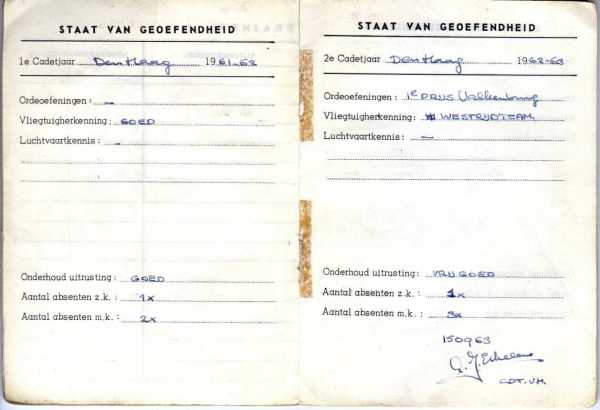 STAAT VAN GEOEFENDHEID
1e Cadetjaar Den Haag 1961-62
Ordeoefeningen: —
Vliegtuigherkenning: GOED
Luchtvaartkennis: -
Onderhoud uitrusting: GOED
Aantal absenten z.k.: 1x
Aantal absenten m.k.: 2x
STAAT VAN GEOEFENDHEID
2e Cadetjaar Den Haag 1962-63
Ordeoefeningen: 1e PRIJS Valkenburg
Vliegtuigherkenning: WESTRIJDTEAM
Luchtvaartkennis: —
Onderhoud uitrusting: VRIJ GOED
Aantal absenten z.k.: 1x
Aantal absenten m.k.: 3x
150963
CDT. VM.